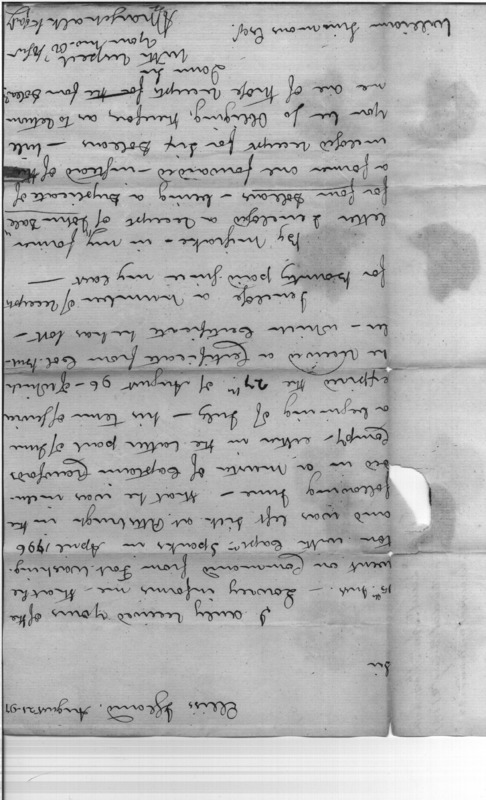 Ellis Island. August 21. 97
Sir
I duly received yours of the
15th Inst. — Lowrey informs me — that he
went on Command from Fort Washing-
ton with Capt. Sparks in April 1796
and was left sick at Pittsburgh in the
following June — that he was inclu-
ded in a Muster of Captain Crawfords
Compy. either in the latter part of June
or beginning of July — his term of service
expired the 27th of August 96 — of which
he received a Certificate from Col.
— which Certificate he has lost —
I enclose a number of receipts
for Bounty paid since my last —
By mistake — in my former
letter I enclosed a receipt of John
for four Dollars — being a Duplicate of
a former one forwarded — instead of the
inclosed receipt for six Dollars — will
you be so obliging, therefore, as to return
me one of those receipts for four Dolls.
I am Sir
With respect
Your
William Simmons Esqr.